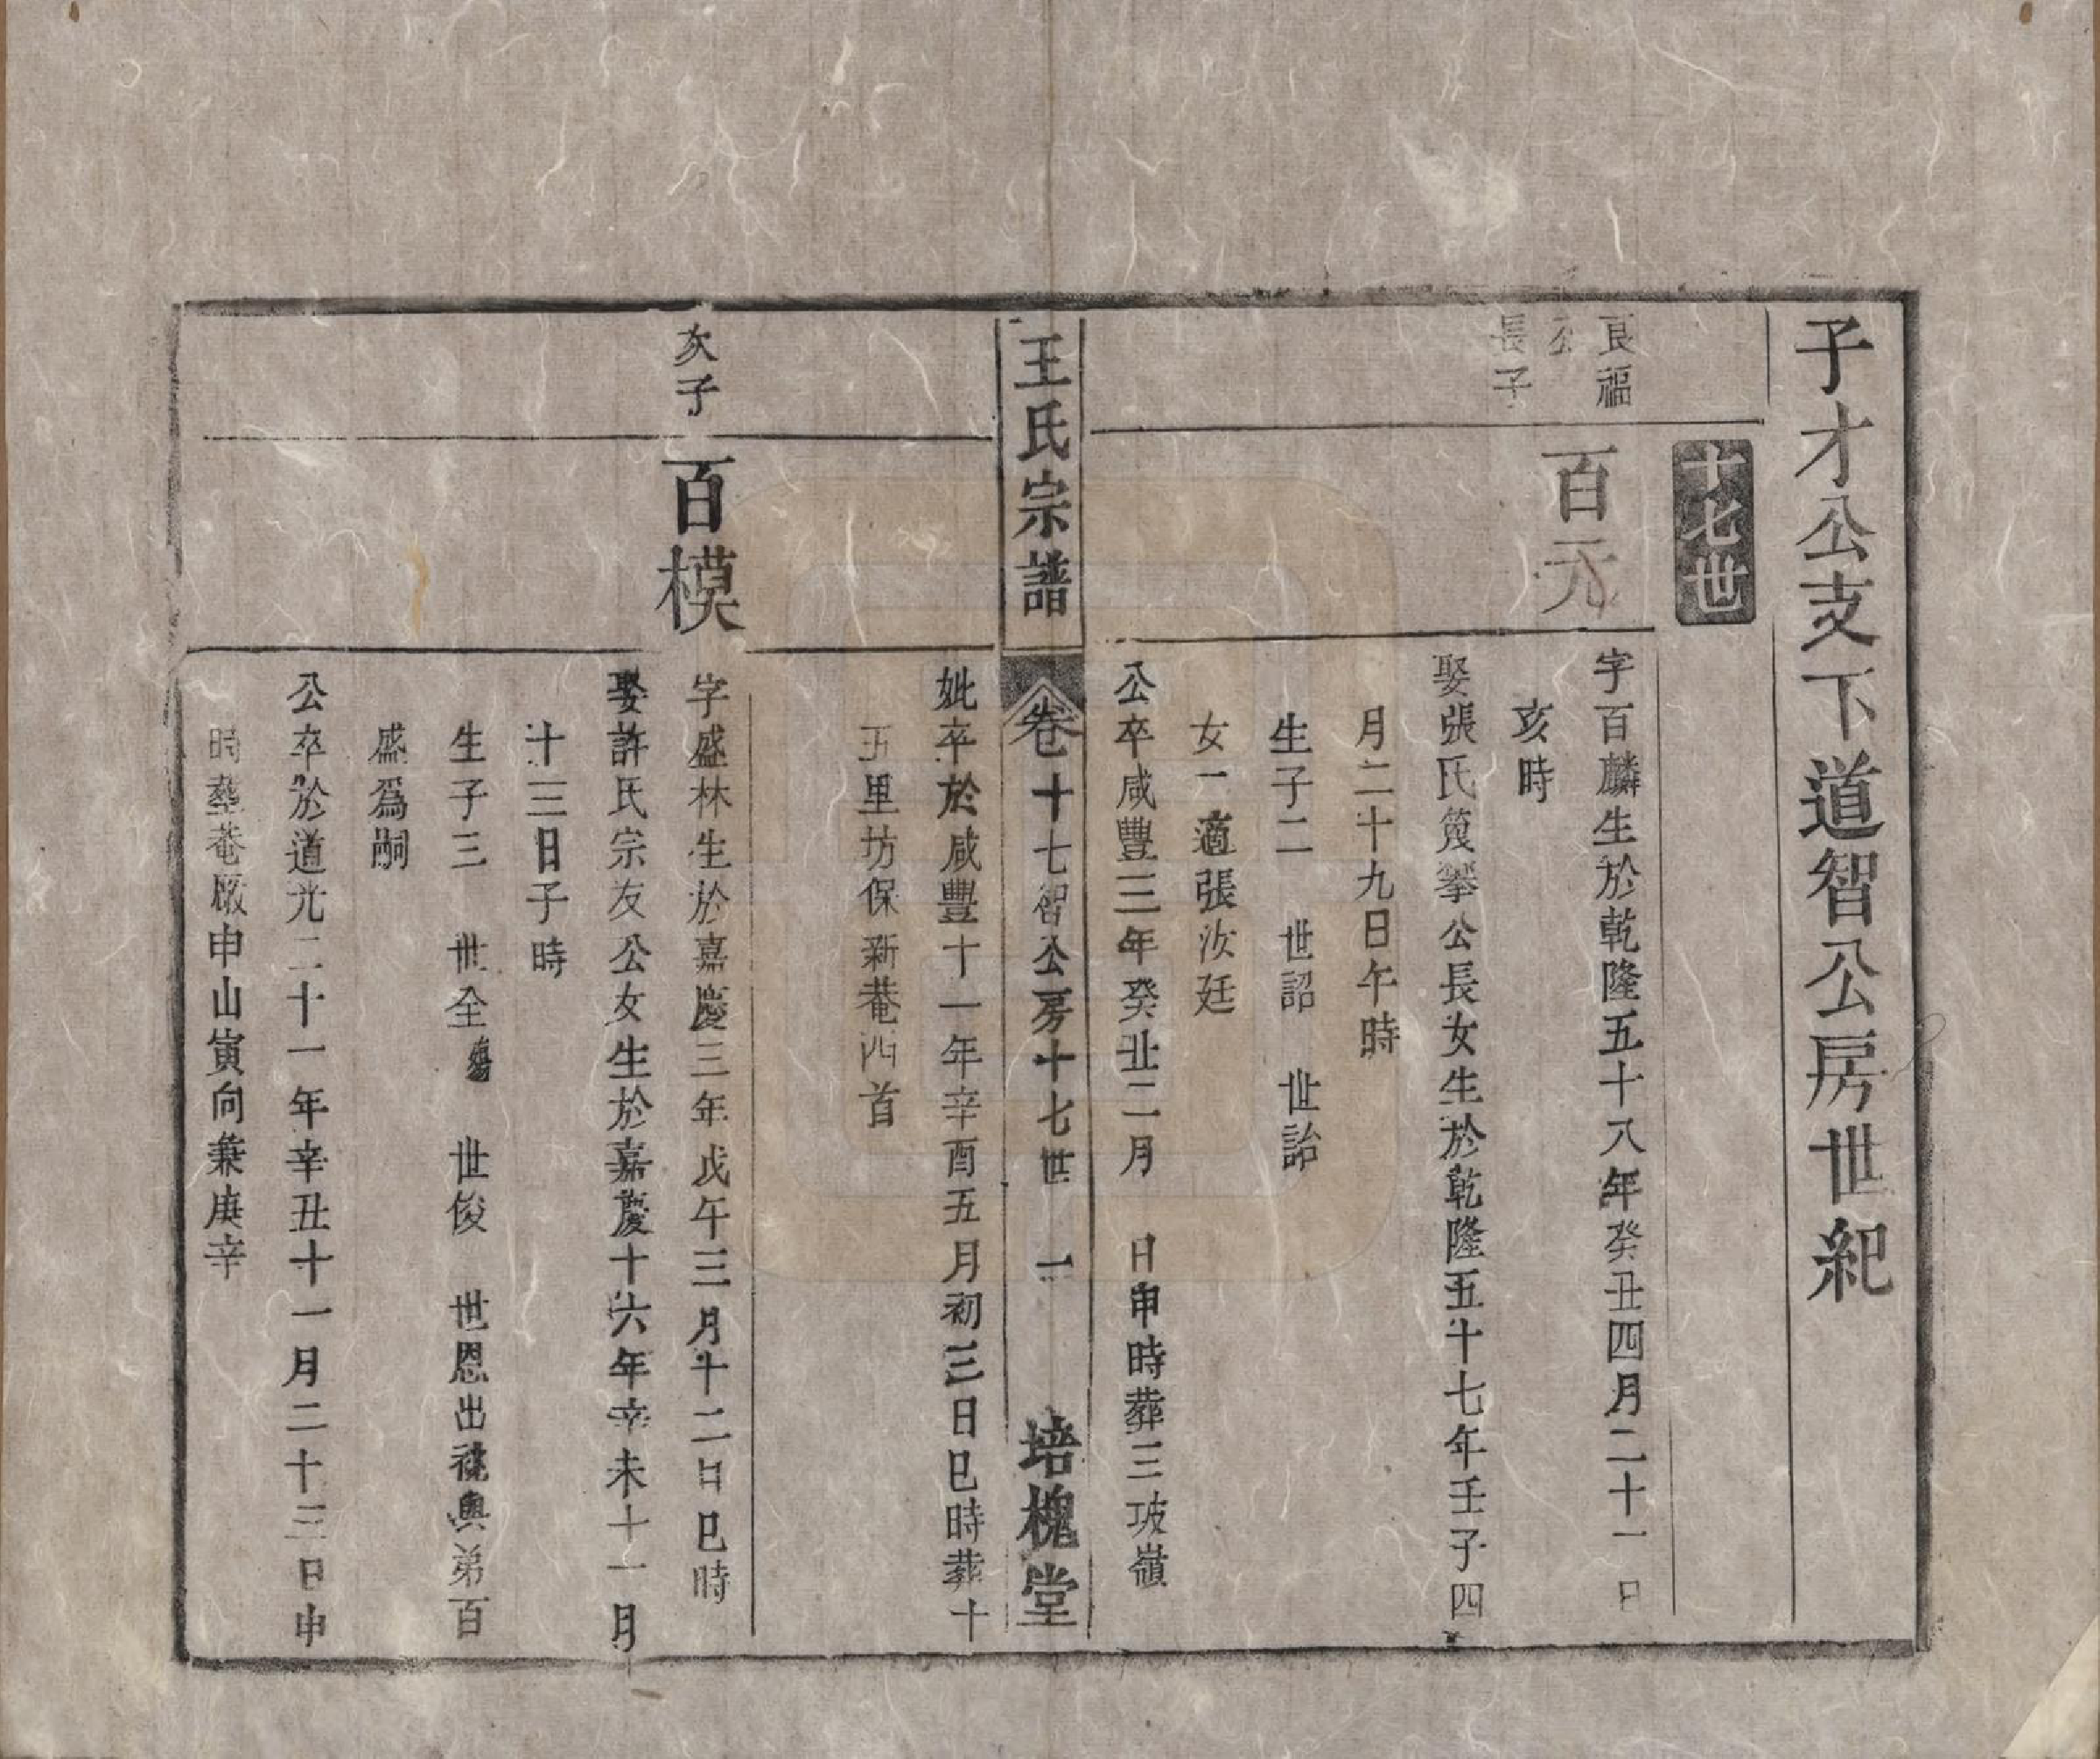 子才公支下道智公房世紀
十七世
良福
公
長子
百元
字百麟生於乾隆五十八年癸丑四月二十一日
亥時
娶張氏笕攀公長女生於乾隆五十七年壬子四
月二十九日午時
生子二　世詔　世詒
女一適張汝廷
公卒咸豐三年癸丑二月　日申時葬三坡嶺
王氏宗譜
卷十七智公房十七世　一
培槐堂
妣卒於咸豐十一年辛酉五月初三日巳時葬十
五里坊保新菴西首
次子
百模
字盛林生於嘉慶三年戊午三月十二日巳時
娶許氏宗友公女生於嘉慶十六年辛未十一月
十三日子時
生子三　世全殤　世俊　世恩出禠與弟百
盛爲嗣
公卒於道光二十一年辛丑十一月二十三日申
時塟菴厰申山寅向兼庚辛